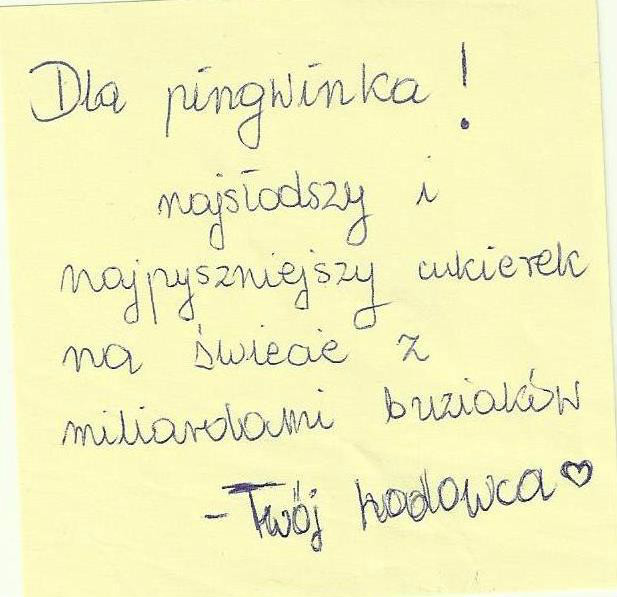 Dla pingwinka!
najsłodszy i
najpyszniejszy cukierek
na świecie z
miliardami buziaków
-Twój hodowca♡